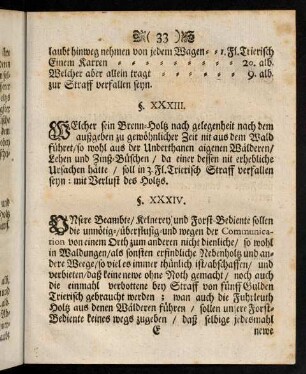 ( 33 )
laubt hinweg nehmen von jedem Wagen - - 1. Fl. Trierisch
Einem Karren - - - - - - - - 20. alb.
Welcher aber allein tragt - - - - - - 9. alb.
zur Straff verfallen seyn.
§. XXXIII.
WElcher sein Brenn-Holtz nach gelegenheit nach dem
außgeben zu gewöhnlicher Zeit nit aus dem Wald
führet / so wohl aus der Underthanen aigenen Wälderen /
Lehen und Zinß-Büschen / da einer dessen nit erhebliche
Ursachen hätte / soll in 3. Fl. Trierisch Straff verfallen
seyn: mit Verlust des Holtzs.
§. XXXIV.
UNsere Beambte / Kelnerey und Forst-Bediente sollen
die unnötig-/überflüsig- und wegen der Communica-
tion von einem Orth zum anderen nicht dienliche / so wohl
in Waldungen / als sonsten erfindliche Nebenholtz und an-
dere Weege / so viel es immer thünlich ist / abschaffen / und
verbieten / daß keine newe ohne Noth gemacht / noch auch
die einmahl verbottene bey Straff von fünff Gulden
Trierisch gebraucht werden: wan auch die Fuhrleuth
Holtz aus denen Wälderen führen / sollen unsere Forst-
Bediente keines wegs zugeben / daß selbige jedesmahl
E newe